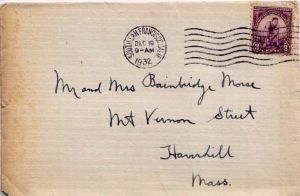 SOUTH SAN FRANCISCO, CALIF.
DEC 19
9-AM
1932
Mr and Mrs Bainbridge Morse
Mt Vernon Street
Haverhill
Mass.